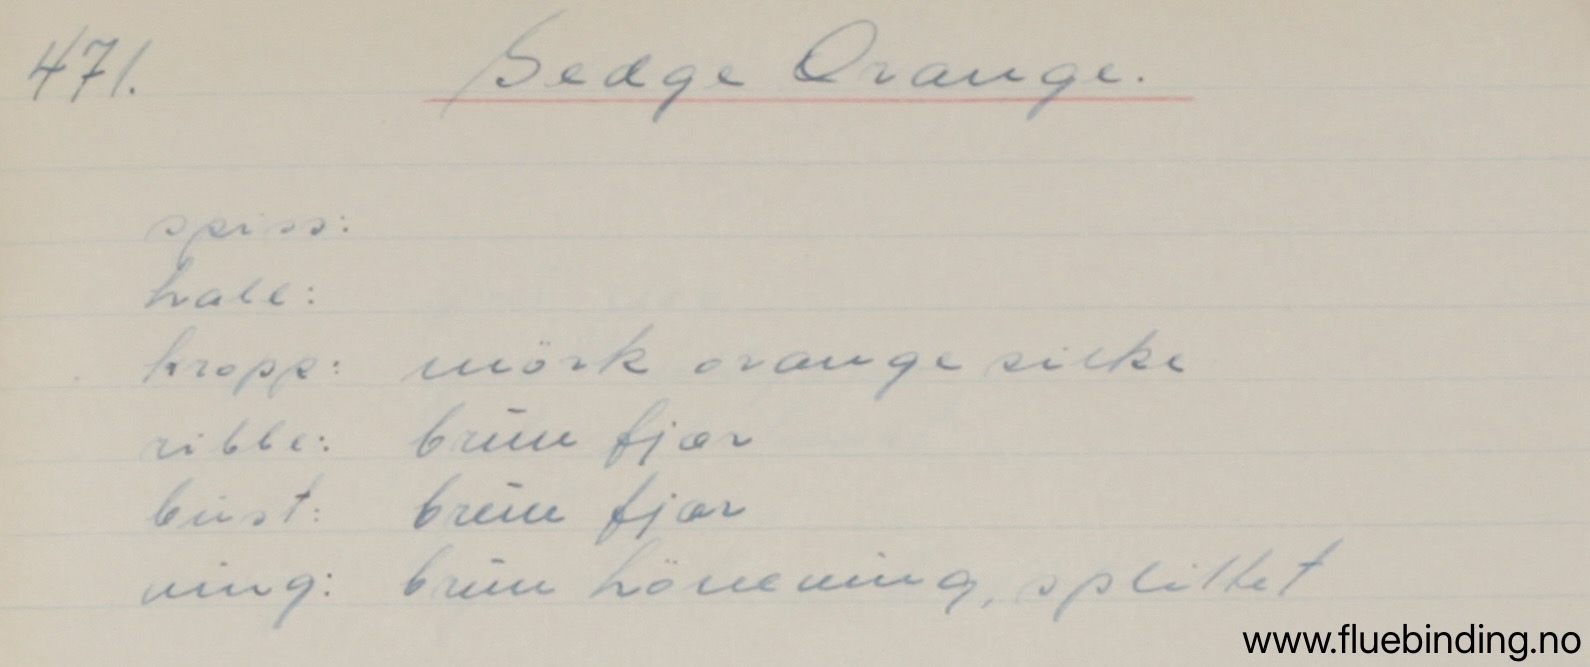 471. Sedge Orange.
spiss:
hale:
kropp: mörk orange silke
ribbe: brun fjær
bust: brun fjær
ving: brun höneving, splittet
www.fluebinding.no